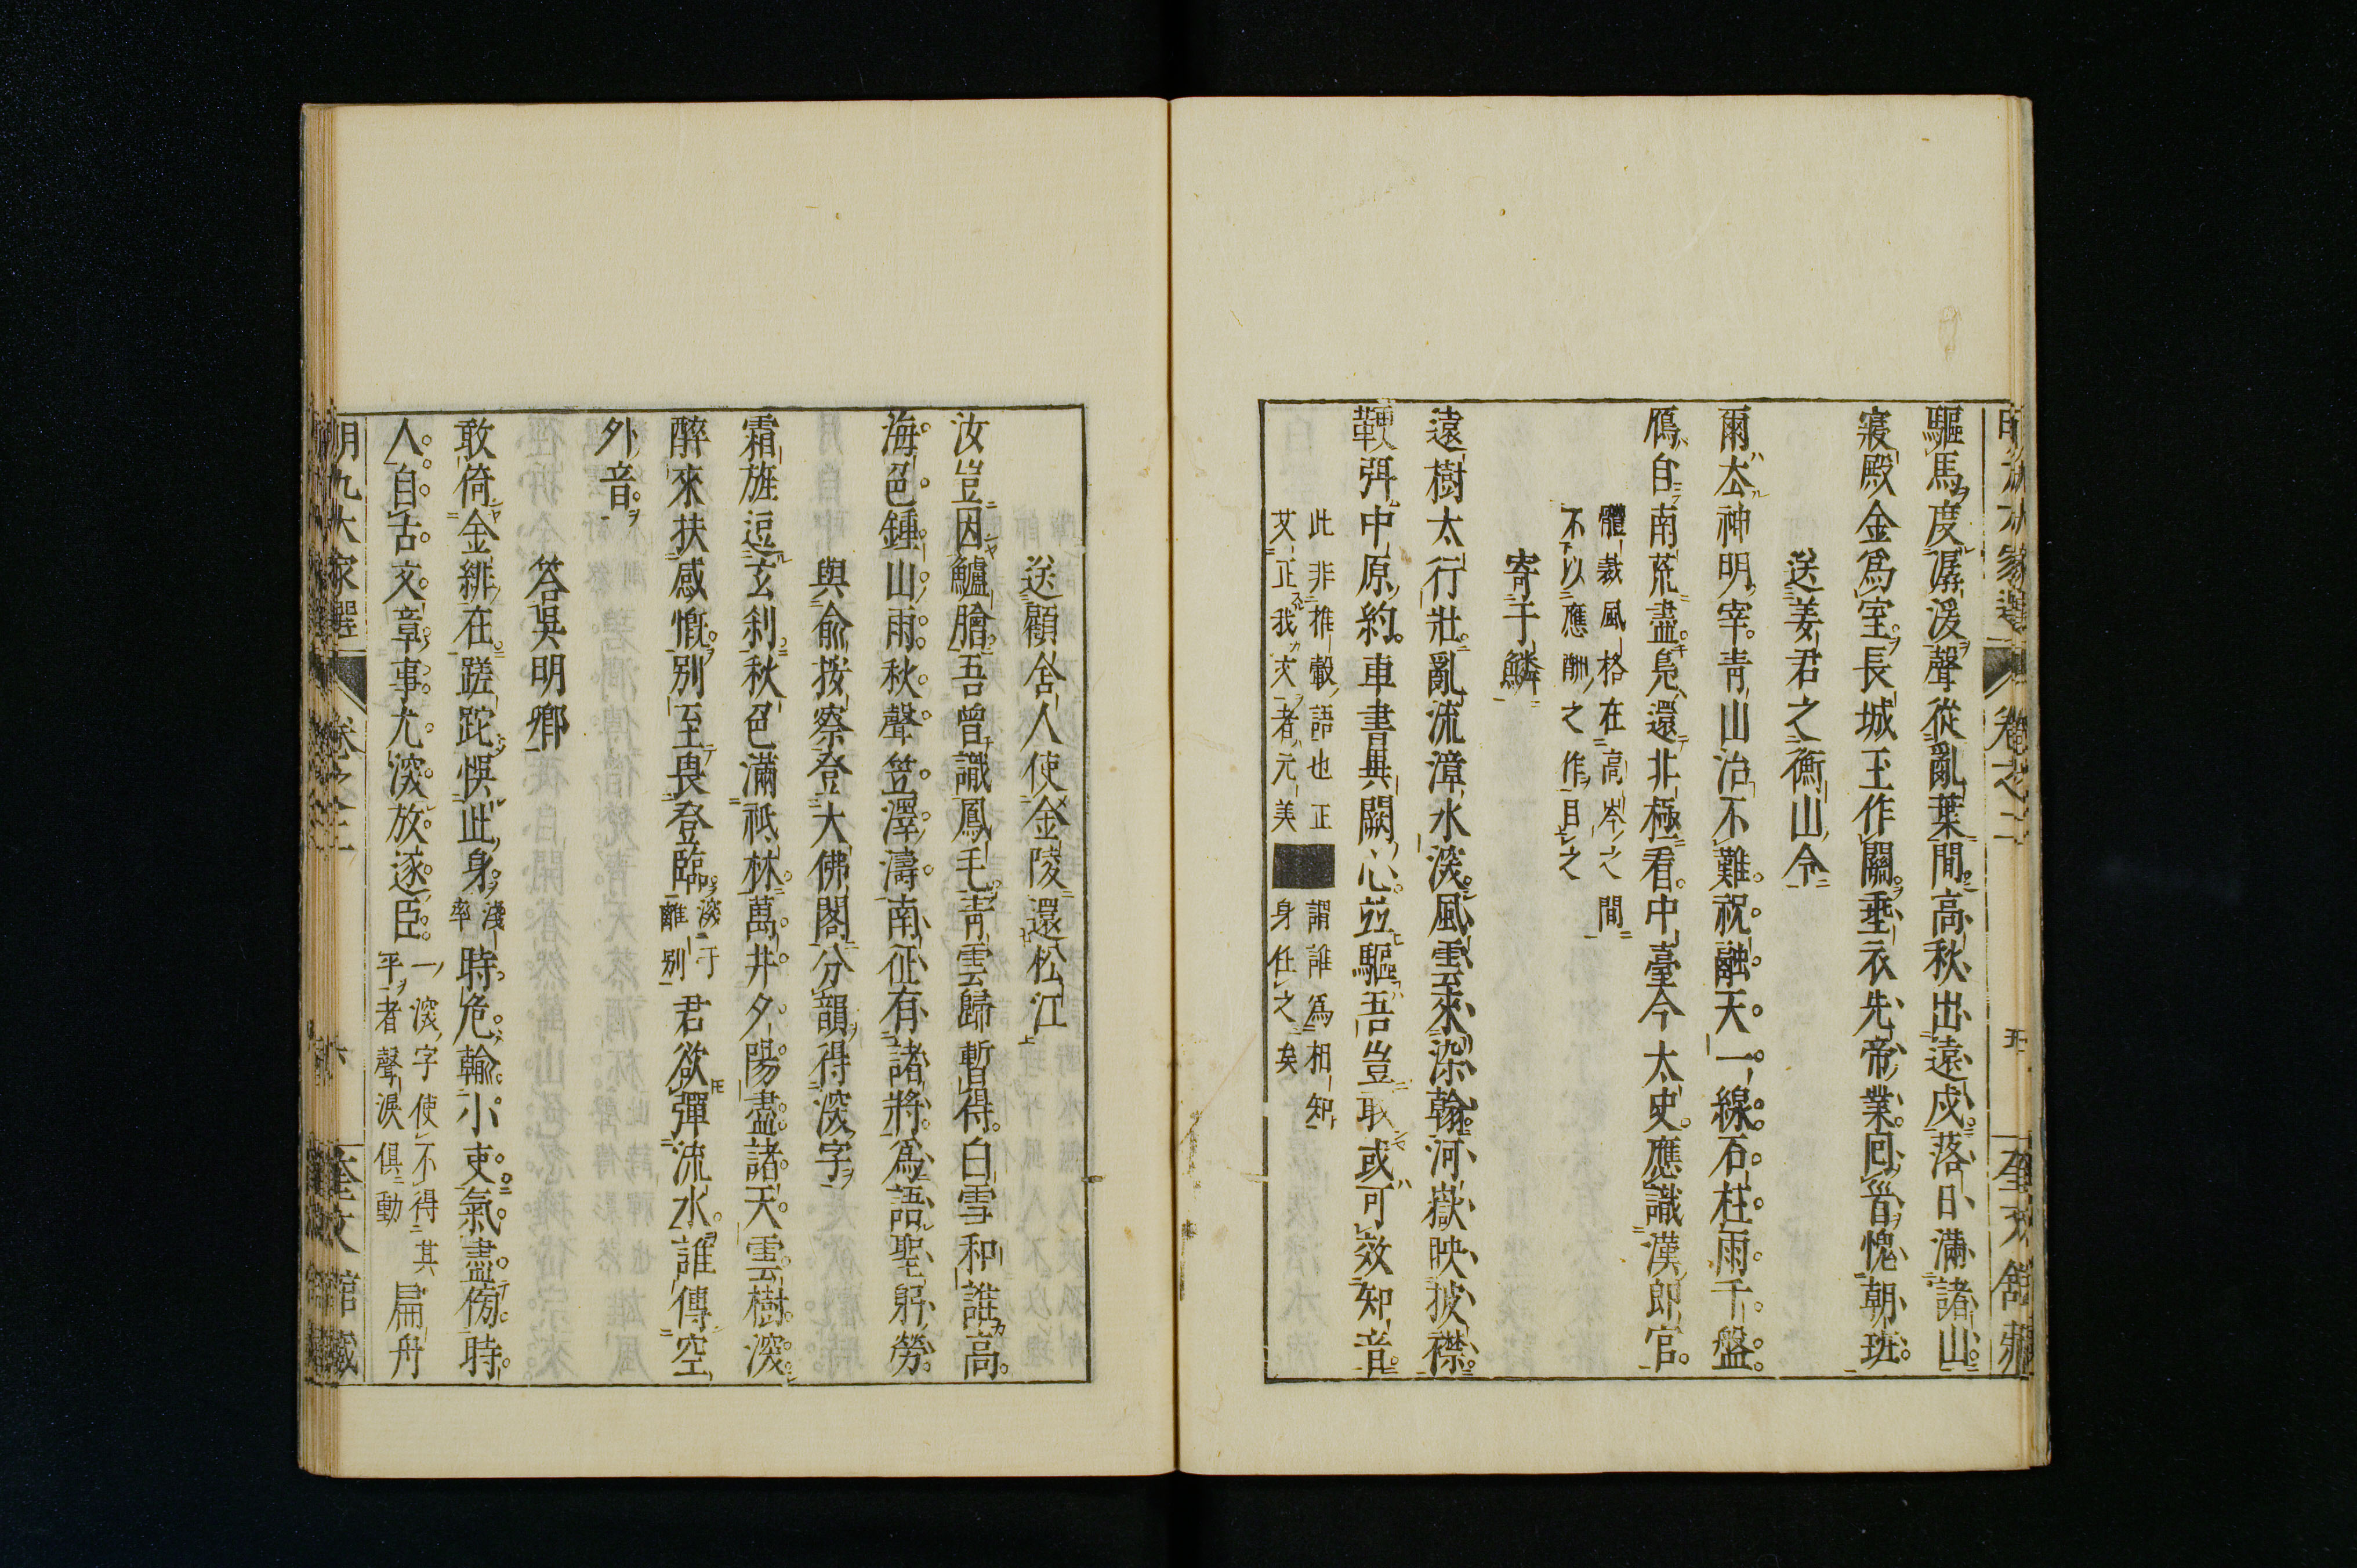 驅馬度潺湲聲從亂葉間高秋出遠戍落日滿諸山
寢殿金為室長城玉作關垂衣先帝業回首愧朝班
送姜君之衡山令
爾去神明宰青山治不難祝融天一線石柱雨千盤
鴈自南荒盡鳧還非極看中臺今太史應識漢郎官
體裁風格在高岑之間
不下以應酬之作目之
寄于鱗
遠樹太行壯亂流漳水淡風雲來染翰河嶽映披襟
鞭弭中原約車書異闕心並驅吾豈敢或可效知音
此非推轂語也正
謂誰為相知
艾正我大者元美
身任之矣
送顧舍人使金陵還松江
汝豈因鱸膾吾曾識鳳毛青雲歸暫得白雪和誰高
海色鍾山雨秋聲笠澤濤南征有諸將為語聖躬勞
與俞按察登大佛閣分韻得深字
霜旌逗玄刹秋色滿祇林萬井夕陽盡諸天雲樹深
醉來扶感慨別至畏登臨
淡于
離別
君欲彈流水誰傳空
外音
答吳明卿
敢倚金緋在蹉跎悞此身
淺
率
時危輸小吏氣盡傍時
人自古文章事尤深放逐臣
一深字使不得其
平者聲淚俱動
扁舟
明九大家選
卷之三
六
奎文館藏
卷之三
五